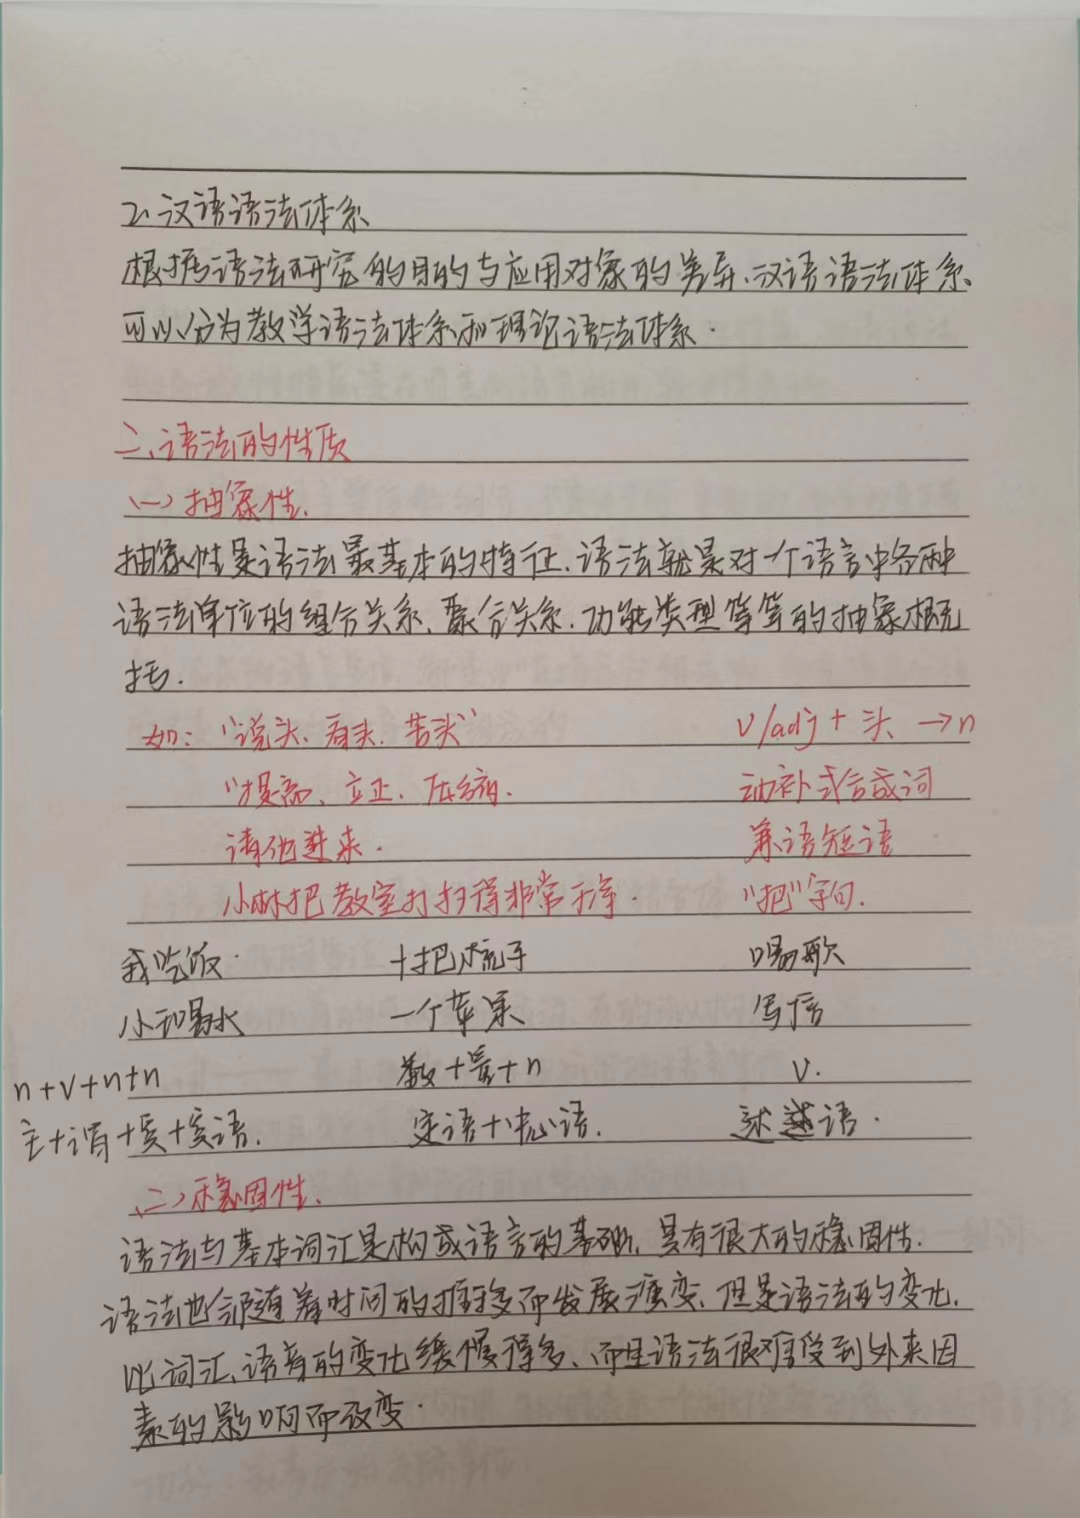 2、汉语语法体系
根据语法研究的目的与应用对象的差异、汉语语法体系
可以分为教学语法体系和理论语法体系.
二、语法的性质
(一)抽象性.
抽象性是语法最基本的特征.语法就是对一个语言中各种
语法单位的组合关系、聚合关系.功能类型等等的抽象概
括.
如:"说头、看头、苦头" V/adj + 头 →n
"提高、立正、压缩. 动补式合成词
请他进来. 兼语短语
小林把教室打扫得非常干净. "把"字句.
我吃饭. 十把梳子 唱歌
小和喝水 一个苹果 写信
n+v+n+n 数+量+n v.
主+谓+宾+宾语. 定语+中心语. 述语.
(二)稳固性.
语法与基本词汇是构成语言的基础,具有很大的稳固性.
语法也会随着时间的推移而发展演变、但是语法的变化,
比词汇、语音的变化缓慢得多、而且语法很难受到外来因
素的影响而改变.